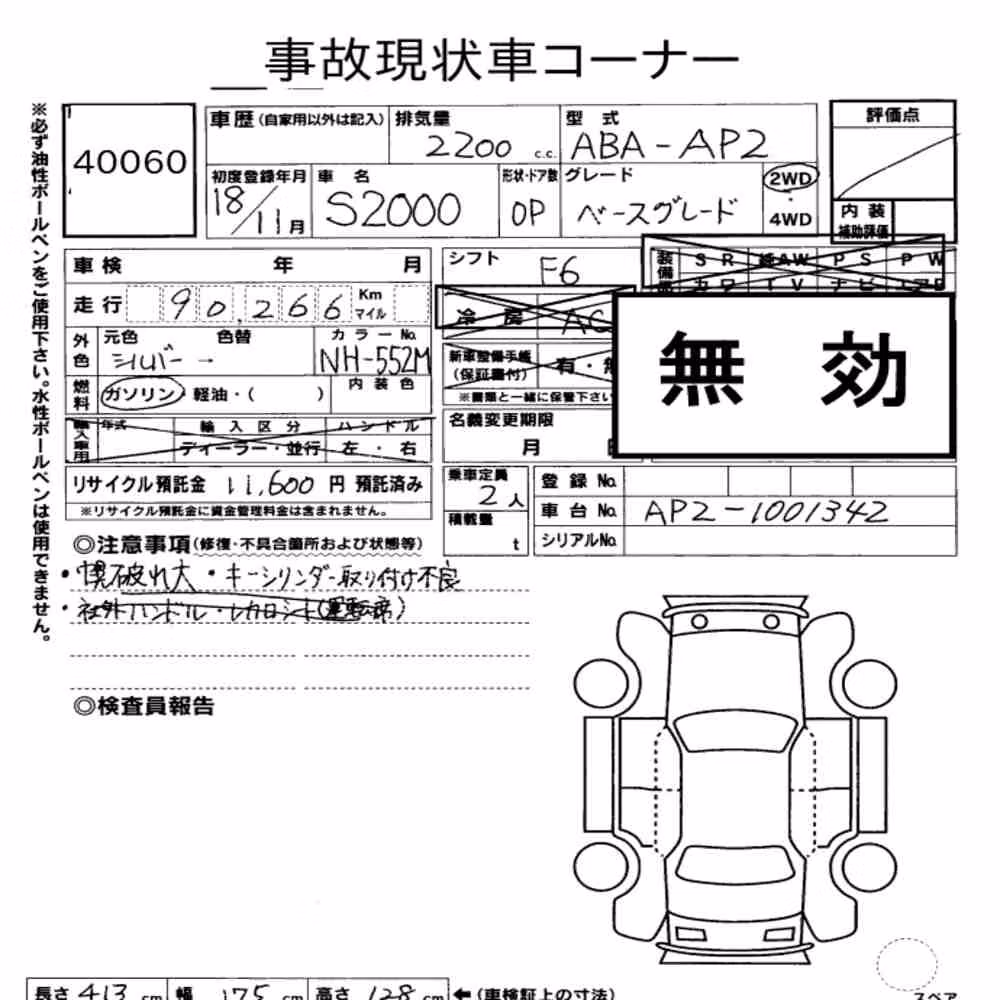 事故現状車コーナー
※必ず油性ボールペンをご使用下さい。水性ボールペンは使用できません。
40060
車歴(自家用以外は記入)
排気量
2200 c.c.
型式
ABA-AP2
評価点
初度登録年月
18/11月
車名
S2000
形状・ドア数
OP
グレード
ベースグレード
2WD
・
4WD
内装
補助評価
車検 年 月
走行 90,266 Km マイル
外色
元色 色替
シルバー →
カラーNo.
NH-552M
燃料
ガソリン・軽油・( )
内装色
輸入車用
年式 輸入区分 ハンドル
ディーラー・並行 左・右
リサイクル預託金 11,600 円 預託済み
※リサイクル預託金に資金管理料金は含まれません。
シフト
F6
冷房 AC
新車整備手帳
(保証書付)
有・無
※書類と一緒に保管下さい
名義変更期限
月
装備品
SR 純AW PS PW
カワ TV ナビ エアB
無効
乗車定員
2人
積載量
t
登録No.
車台No. AP2-1001342
シリアルNo.
◎注意事項(修復・不具合箇所および状態等)
・幌破れ大・キーシリンダー取り付け不良
・社外ハンドル・レカロシート(運転席)
◎検査員報告
スペア
長さ 413 cm 幅 175 cm 高さ 128 cm ←(車検証上の寸法)